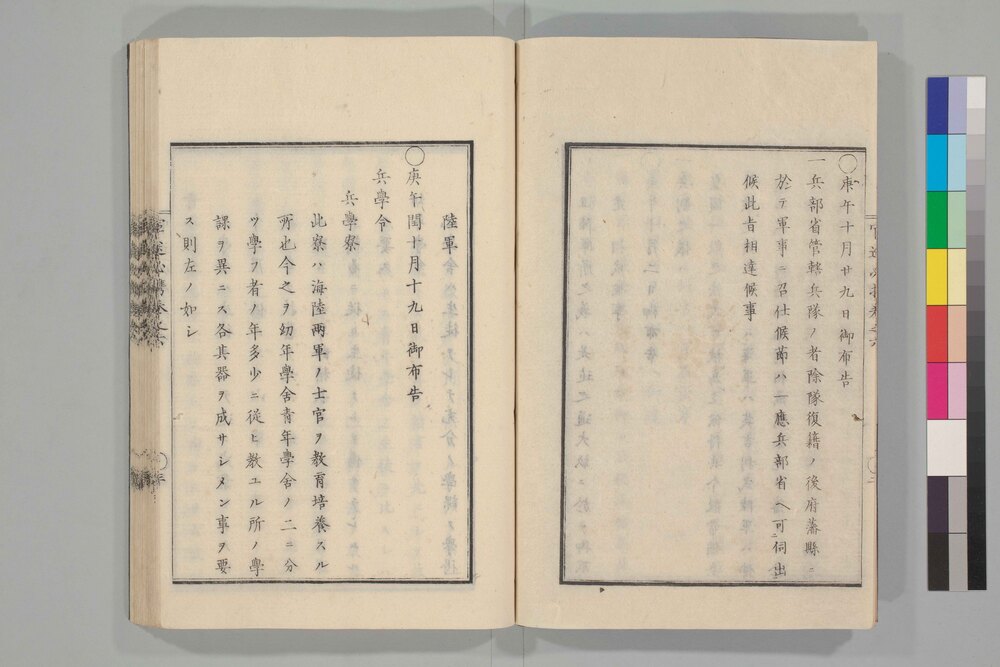 〇庚午十月廿九日御布告
一兵部省管轄兵隊ノ者除隊復籍ノ後府藩縣ニ
於テ軍事ニ召仕候節ハ一應兵部省ヘ可伺出
候此旨相達候事
陸軍
〇庚午閏十月十九日御布告
兵學令
兵學寮
此寮ハ海陸兩軍ノ士官ヲ教育培養スル
所也今之ヲ幼年學舎青年學舎ノ二ニ分
ツ學フ者ノ年多少ニ從ヒ教ユル所ノ學
課ヲ異ニス各其器ヲ成サシメン事ヲ要
ス則左ノ如シ